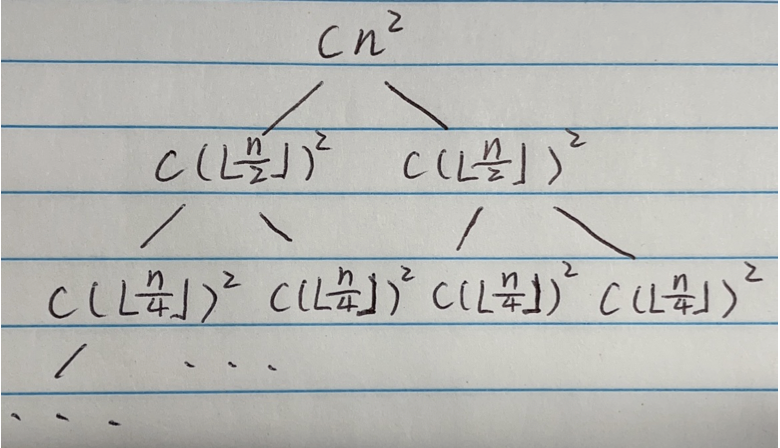 Cn²
C(⌊n/2⌋)² C(⌊n/2⌋)²
C(⌊n/4⌋)² C(⌊n/4⌋)² C(⌊n/4⌋)² C(⌊n/4⌋)²
...
...